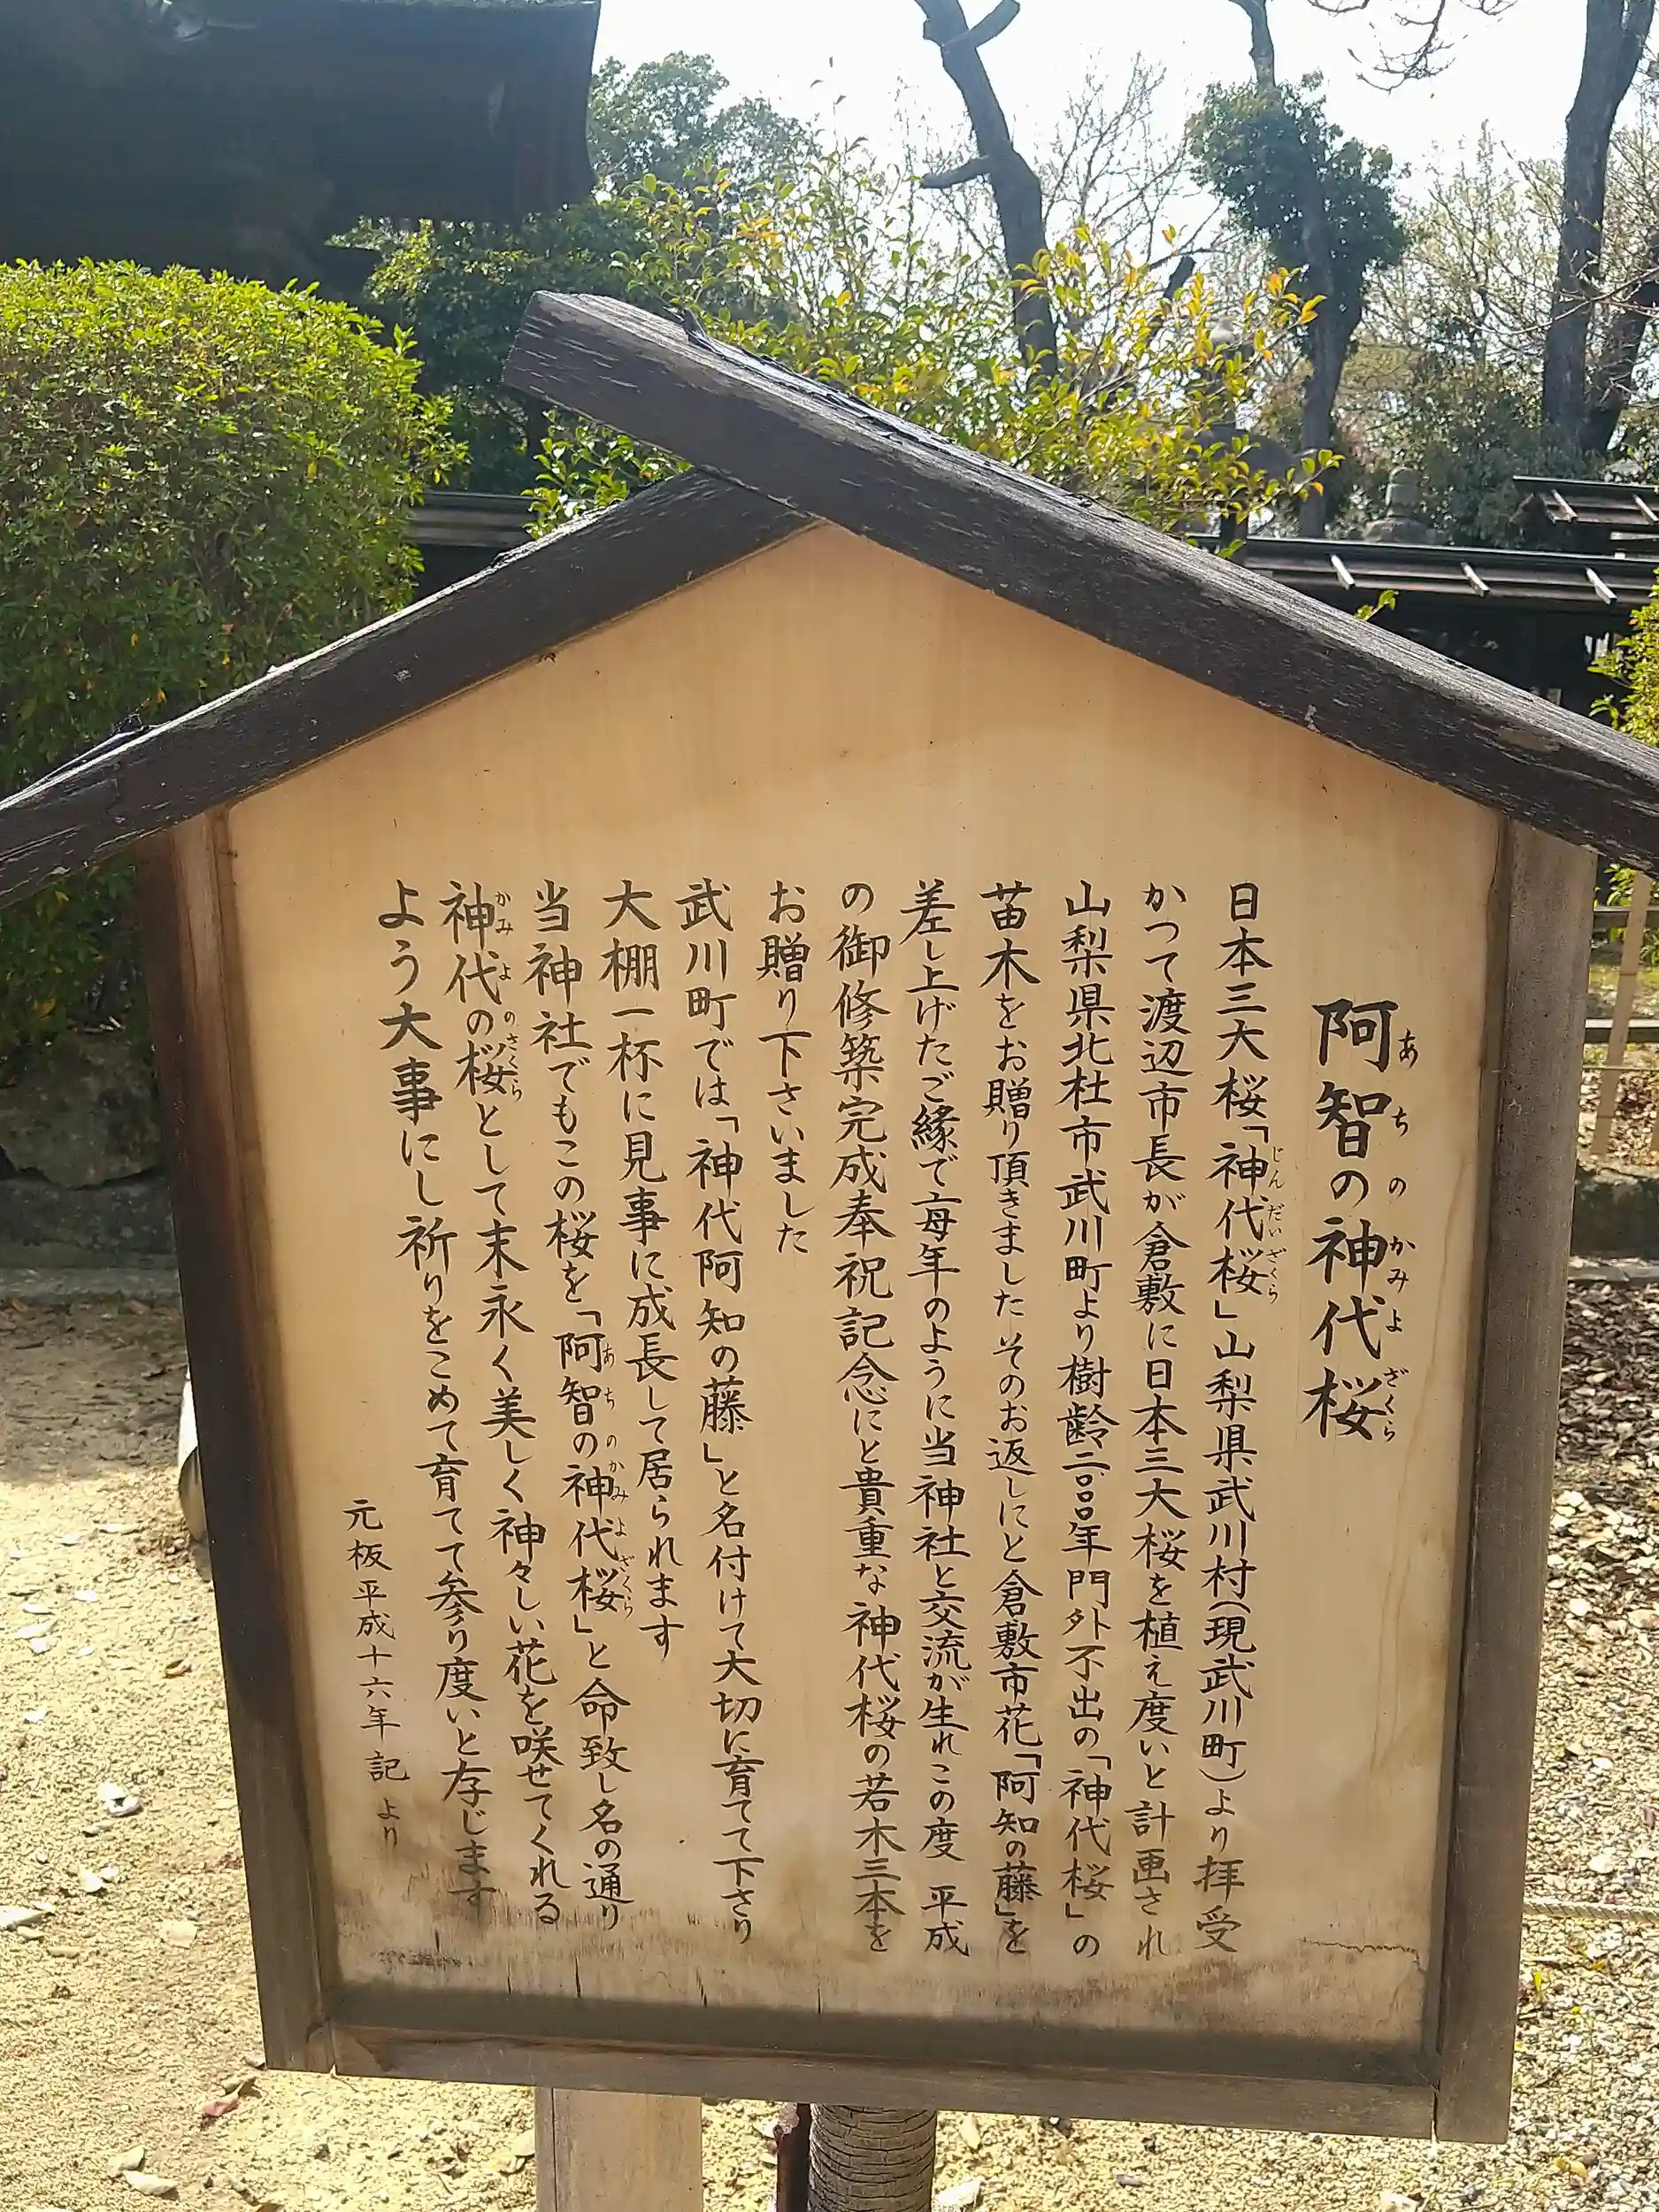 阿智の神代桜
日本三大桜「神代桜」山梨県武川村(現武川町)より拝受
かつて渡辺市長が倉敷に日本三大桜を植え度いと計画され
山梨県北杜市武川町より樹齢二〇〇〇年門外不出の「神代桜」の
苗木をお贈り頂きました そのお返しにと倉敷市花「阿知の藤」を
差し上げたご縁で毎年のように当神社と交流が生れこの度 平成
の御修築完成奉祝記念にと貴重な神代桜の若木三本を
お贈り下さいました
武川町では「神代阿知の藤」と名付けて大切に育てて下さり
大棚一杯に見事に成長して居られます
当神社でもこの桜を「阿智の神代桜」と命致し名の通り
神代の桜として末永く美しく神々しい花を咲せてくれる
よう大事にし祈りをこめて育てて参り度いと存じます
元板平成十六年記より